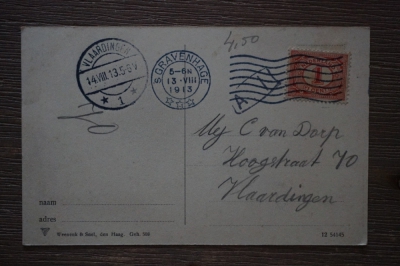 4,50
VLAARDINGEN
14.VIII.13.5-6V
* 1 *
S GRAVENHAGE
5-6N
13·VIII
1913
A VI
1
Mej C van Dorp
Hoogstraat 70
Vlaardingen
naam
adres
Weenenk & Snel, den Haag. Geb. 346
12 14145